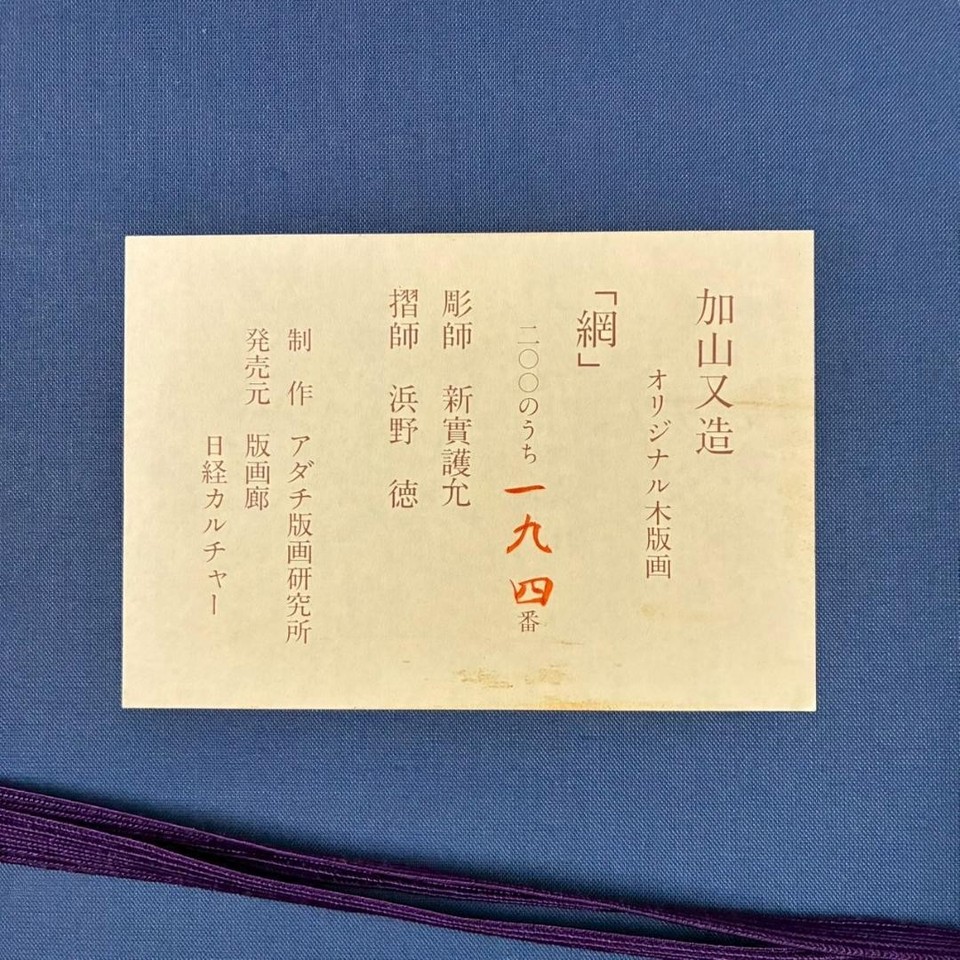 加山又造
オリジナル木版画
「網」
二〇〇のうち一九四番
彫師　新實護允
摺師　浜野　徳
制　作　アダチ版画研究所
発売元　版画廊
日経カルチャー